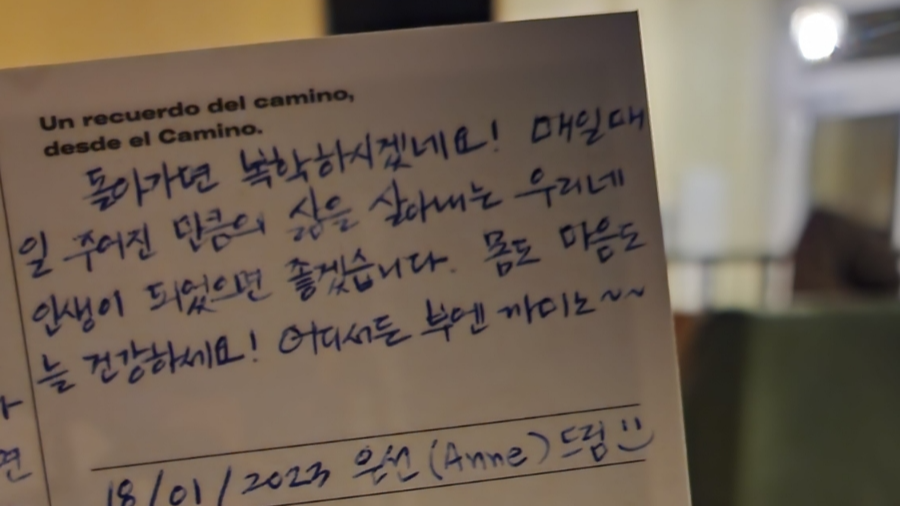 Un recuerdo del camino,
desde el Camino.
돌아가면 복학하시겠네요! 매일매
일 주어진 만큼의 삶을 살아내는 우리네
인생이 되었으면 좋겠습니다. 몸도 마음도
늘 건강하세요! 어디서든 부엔 까미노~~
18/01/2023 은선 (Anne) 드림 :)